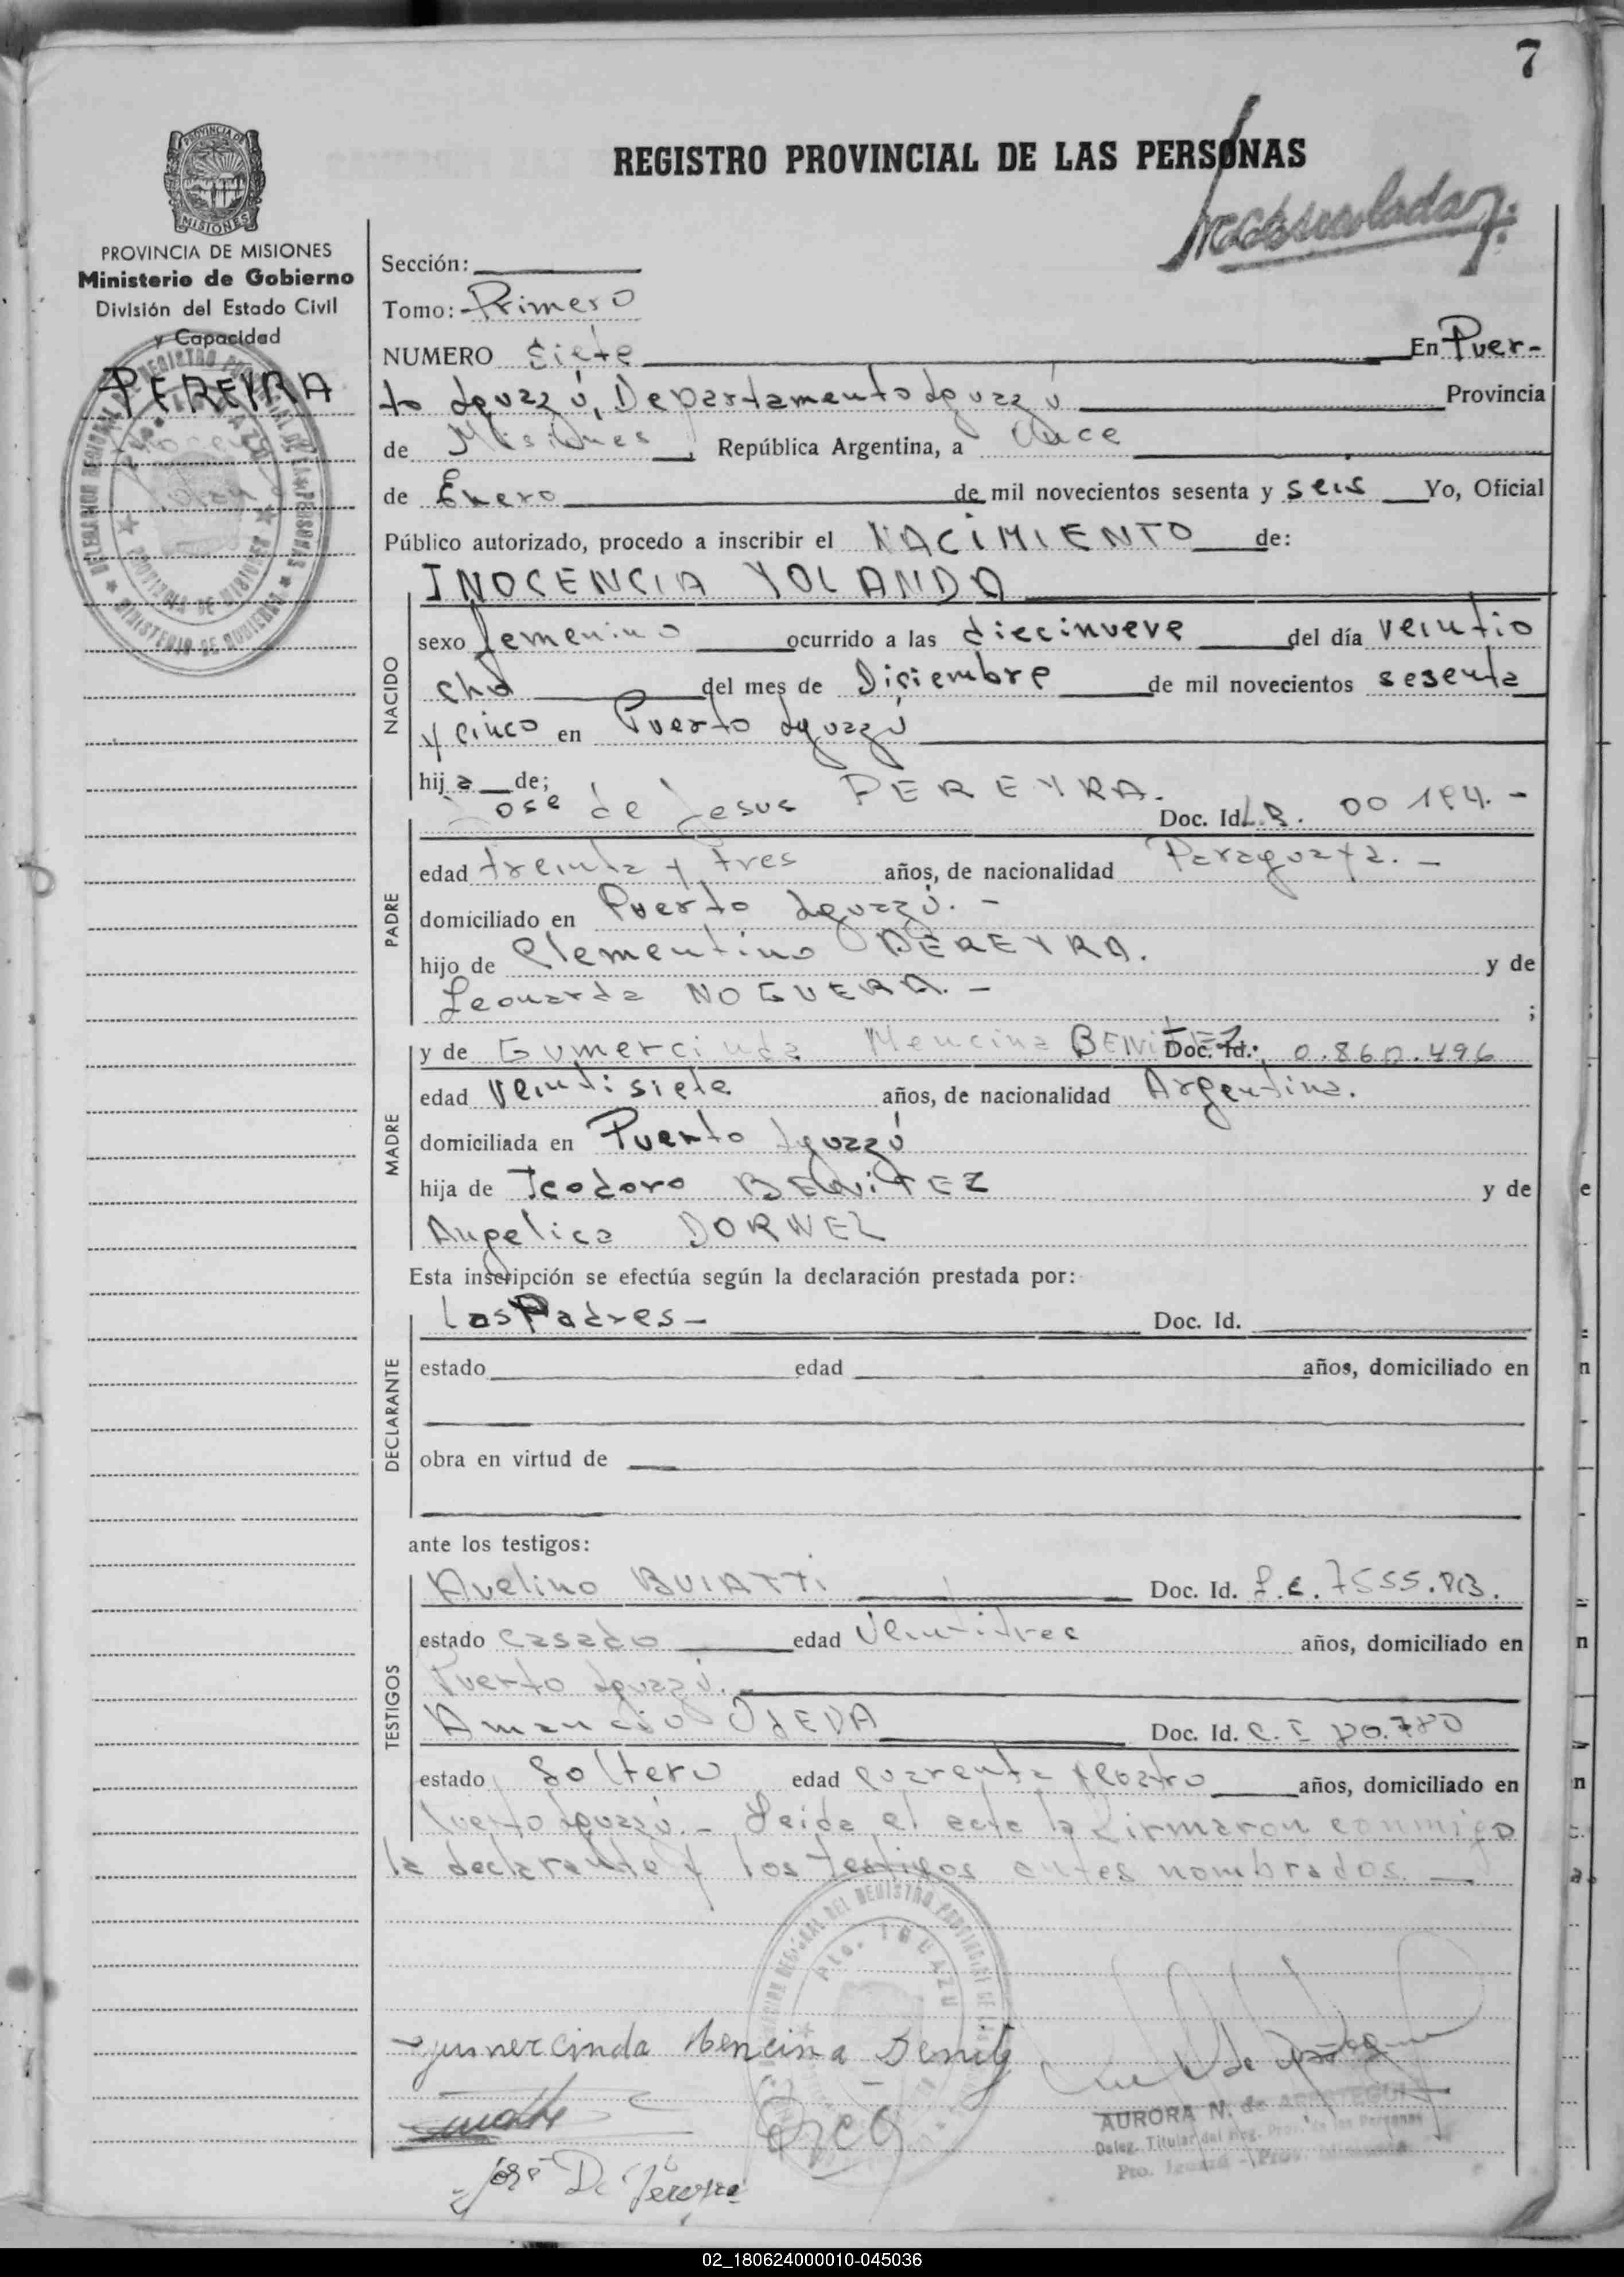 7
REGISTRO PROVINCIAL DE LAS PERSONAS
PROVINCIA DE MISIONES
Ministerio de Gobierno
División del Estado Civil
y Capacidad
PEREYRA
Inocencia
Yolanda
Sección:
Tomo: Primero
NUMERO Siete En Puer-
to Iguazú, Departamento Iguazú Provincia
de Misiones, República Argentina, a Once
de Enero de mil novecientos sesenta y seis Yo, Oficial
Público autorizado, procedo a inscribir el NACIMIENTO de:
INOCENCIA YOLANDA
NACIDO
sexo femenino ocurrido a las diecinueve del día veintio
cho del mes de Diciembre de mil novecientos sesenta
y cinco en Puerto Iguazú
hija de;
PADRE
Jose de Jesus PEREYRA.- Doc. Id.
edad treinta y tres años, de nacionalidad Paraguaya.-
domiciliado en Puerto Iguazú.-
hijo de Clementino PEREYRA. y de
Leonarda NOGUERA.- ;
MADRE
y de Gumercinda Mencina BENITEZ Doc. Id.: 0.860.496
edad veintisiete años, de nacionalidad Argentina.
domiciliada en Puerto Iguazú
hija de Teodoro BENITEZ y de
Angelica DORNEL
Esta inscripción se efectúa según la declaración prestada por:
DECLARANTE
Los Padres- Doc. Id.
estado edad años, domiciliado en
obra en virtud de
ante los testigos:
TESTIGOS
Avelino BUIATTI Doc. Id. L.E. 7555.
estado casado edad Veintitres años, domiciliado en
Puerto Iguazú.-
Amancio OJEDA Doc. Id. C.I
estado Soltero edad cuarenta y cuatro años, domiciliado en
Puerto Iguazú.- Leida el acta la firmaron conmigo
la declarante y los testigos antes nombrados.-
DELEGACION REGIONAL DEL REGISTRO PROVINCIAL DE LAS PERSONAS
Pto. IGUAZU
Gumercinda Mencina Benitez
José De J Pereyra
AURORA N. de AРESTEGUI
Deleg. Titular del Reg. Prov. de las Personas
Pto. Iguazú - Prov. Misiones
02_180624000010-045036